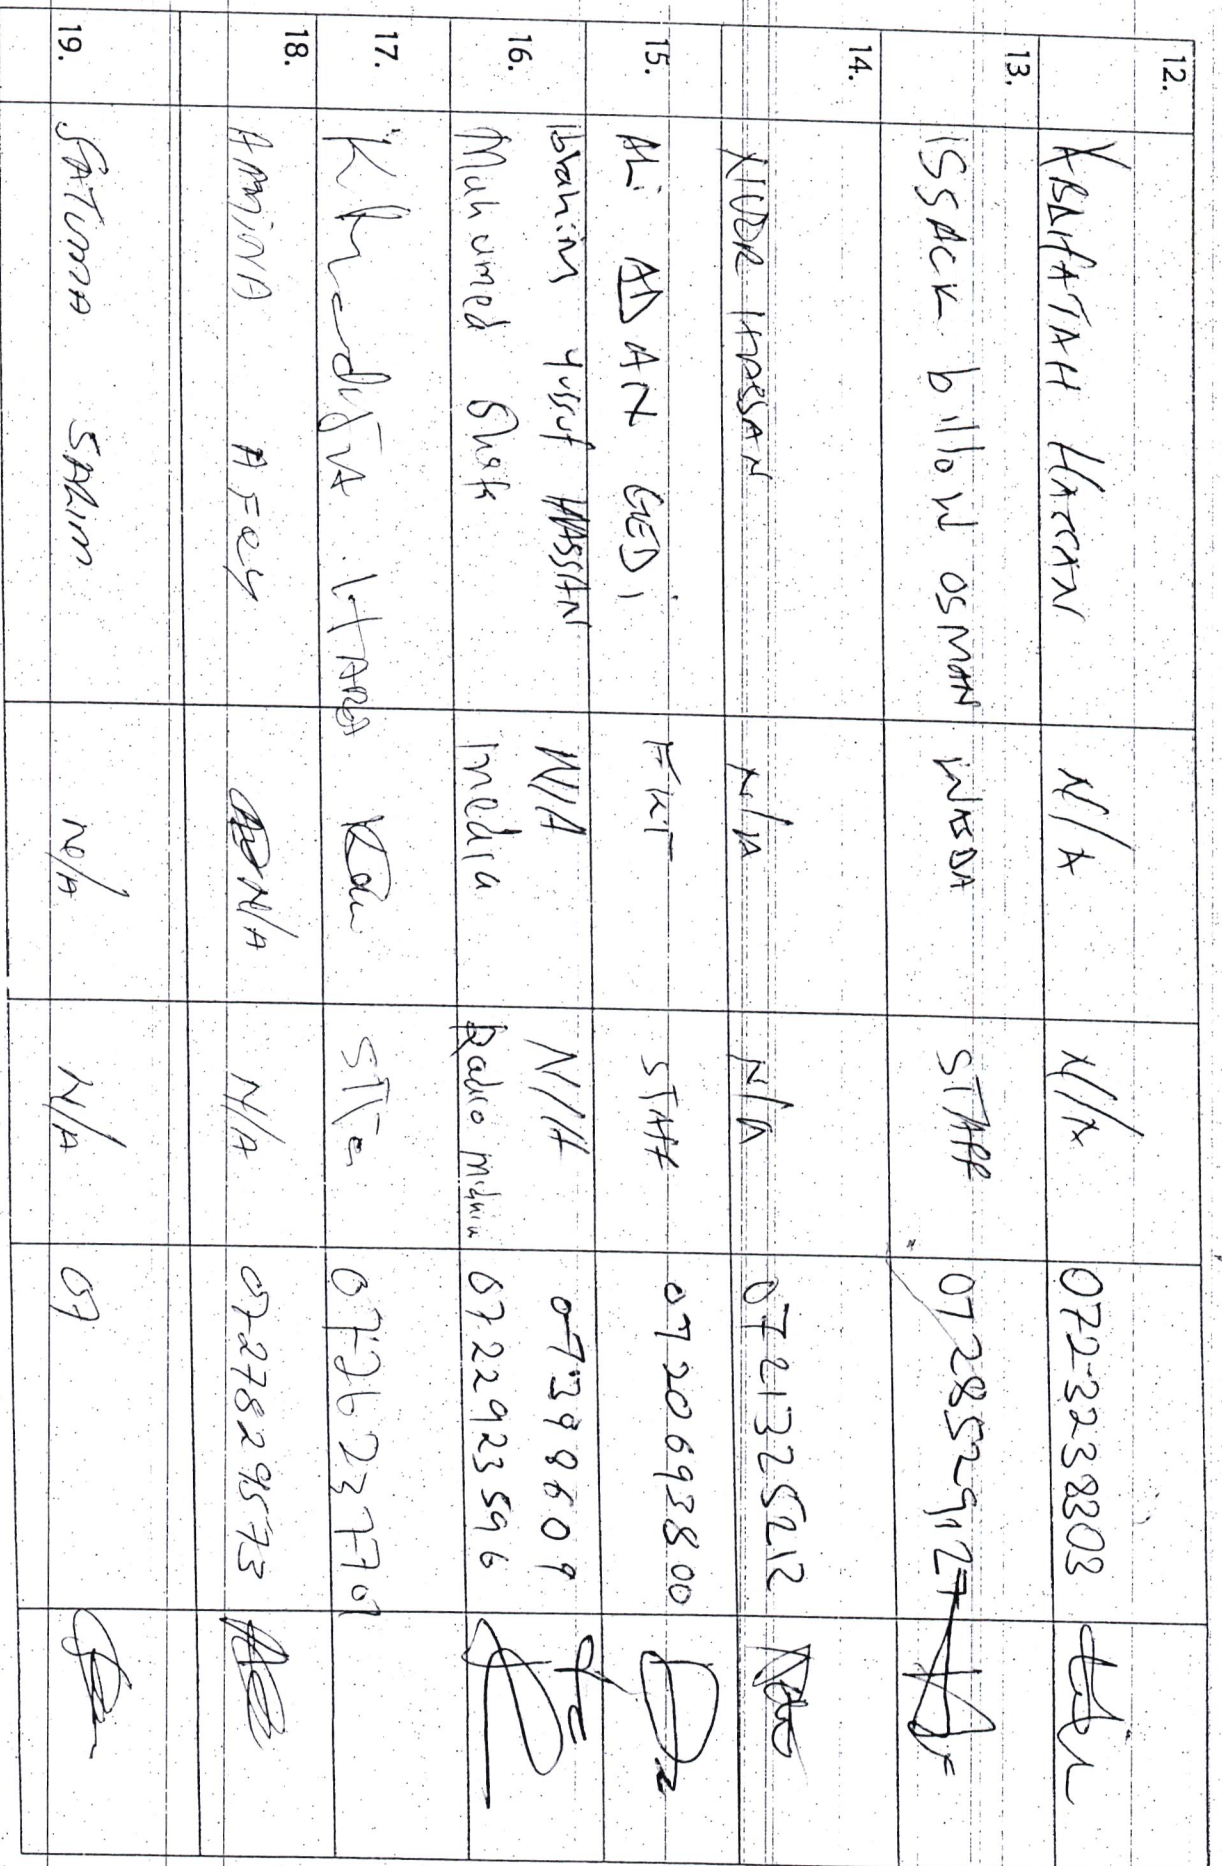 12. ABDIFATAH HASSAN N/A N/A 072-3238303
13. ISSACK billow OSMAN WASDA STAFF 0728529127
14. NUOR HASSAN N/A N/A 0721325212
15. ALI ADAN GEDI STAFF 0720693800
Ibrahim Yussuf HASSAN N/A N/A
16. Muhumed Media Radio 0722923596
17. Khadija 0726237701
18. AMINA AFey N/A N/A 0727829573
19. FATUMA SALIM N/A N/A 07